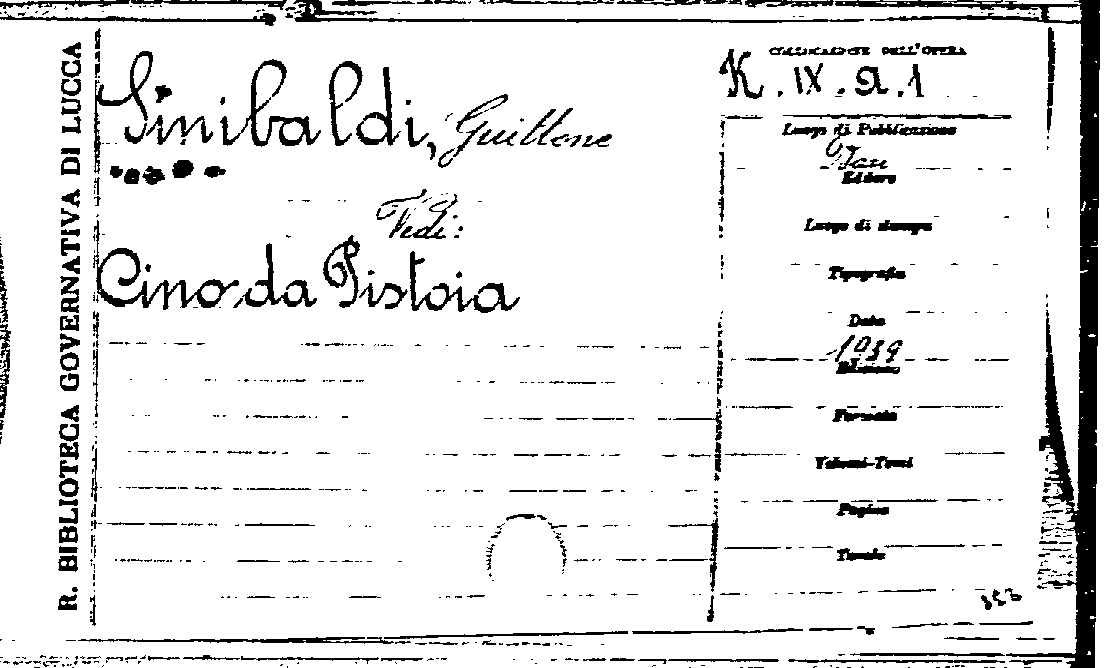 R. BIBLIOTECA GOVERNATIVA DI LUCCA
Sinibaldi, Guittone
Vedi:
Cino da Pistoia
COLLOCAZIONE DELL'OPERA
K. IX. A. 1
Luogo di Pubblicazione
Editore
Luogo di stampa
Tipografia
Data
1939
Edizione
Formato
Volumi-Tomi
Pagine
Tavole
353